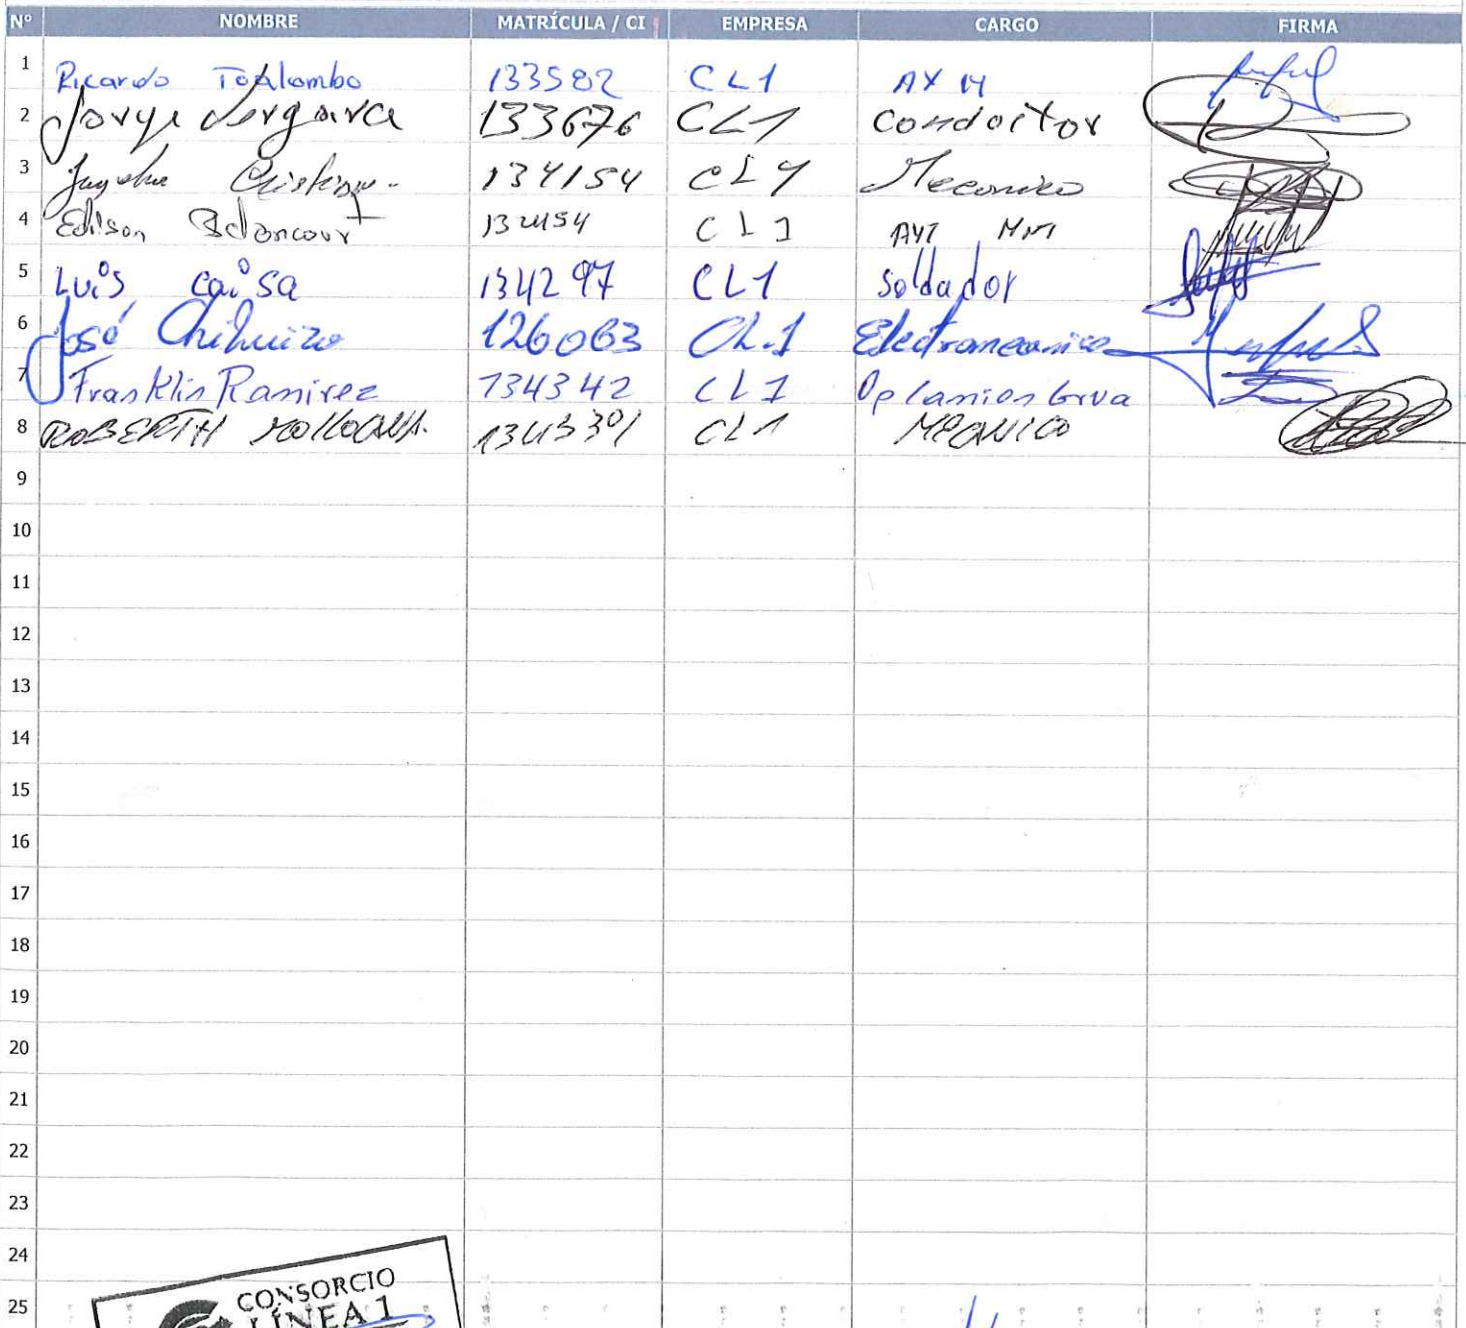 Nº NOMBRE MATRÍCULA / CI EMPRESA CARGO FIRMA
1 Ricardo Toalombo 133582 CL1 AX M
2 Jorge Vergara 133676 CL1 Condoitor
3 134154 CL1 Mecanico
4 Edison Betancourt CL1 AYT MM
5 Luis Caisa 134297 CL1 Soldador
6 José 126063 CL.1 Electromecanico
7 Franklin Ramirez 134342 CL1 Op Camion Grua
8 ROBERTH CL1 MECANICO
9
10
11
12
13
14
15
16
17
18
19
20
21
22
23
24
25
CONSORCIO
LÍNEA 1